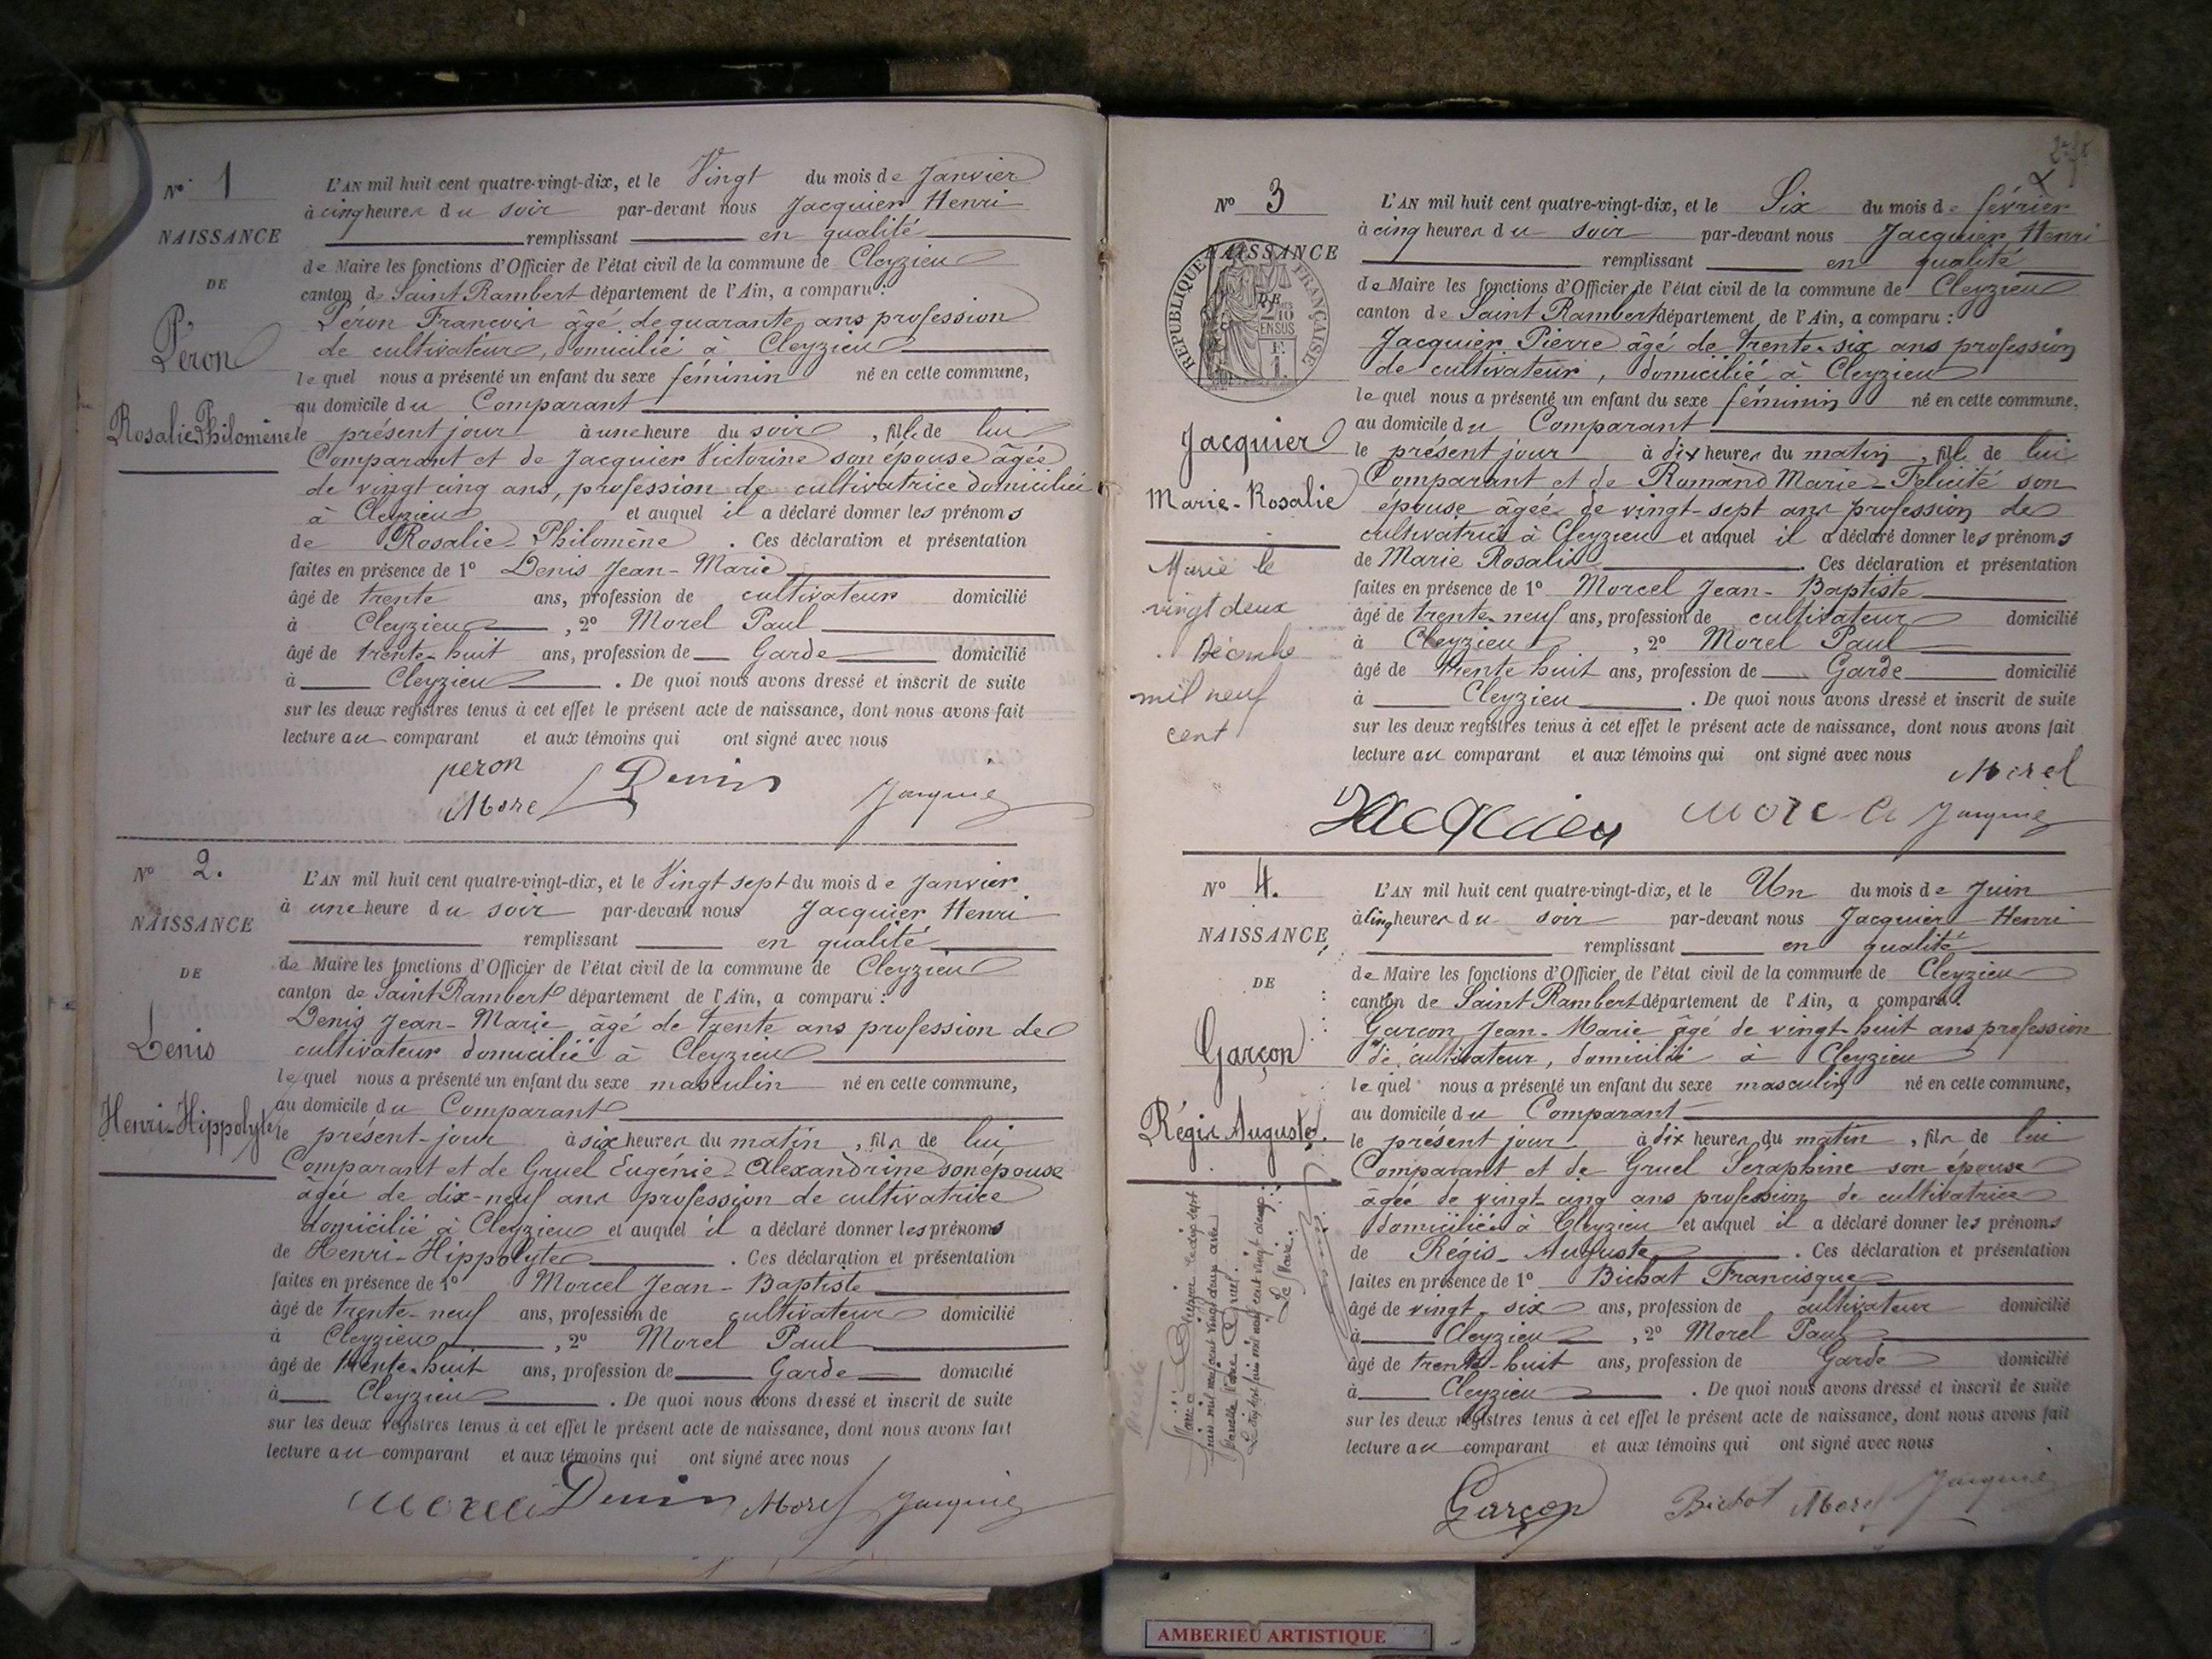 N° 1
NAISSANCE
DE
Péron
Rosalie Philomène
L'AN mil huit cent quatre-vingt-dix, et le Vingt du mois de Janvier
à cinq heures du soir par-devant nous Jacquier Henri
remplissant en qualité
de Maire les fonctions d'Officier de l'état civil de la commune de Cleyzieu
canton de Saint Rambert département de l'Ain, a comparu :
Péron François âgé de quarante ans profession
de cultivateur, domicilié à Cleyzieu
lequel nous a présenté un enfant du sexe féminin né en cette commune,
au domicile du Comparant
le présent jour à une heure du soir, fille de lui
Comparant et de Jacquier Victorine son épouse âgée
de vingt cinq ans, profession de cultivatrice domiciliée
à Cleyzieu et auquel il a déclaré donner les prénoms
de Rosalie Philomène. Ces déclaration et présentation
faites en présence de 1° Denis Jean-Marie
âgé de trente ans, profession de cultivateur domicilié
à Cleyzieu, 2° Morel Paul
âgé de trente-huit ans, profession de Garde domicilié
à Cleyzieu. De quoi nous avons dressé et inscrit de suite
sur les deux registres tenus à cet effet le présent acte de naissance, dont nous avons fait
lecture au comparant et aux témoins qui ont signé avec nous
peron Denis
Morel Jacquier
N° 2.
NAISSANCE
DE
Denis
Henri-Hippolyte
L'AN mil huit cent quatre-vingt-dix, et le Vingt sept du mois de Janvier
à une heure du soir par-devant nous Jacquier Henri
remplissant en qualité
de Maire les fonctions d'Officier de l'état civil de la commune de Cleyzieu
canton de Saint Rambert département de l'Ain, a comparu :
Denis Jean-Marie âgé de trente ans profession de
cultivateur domicilié à Cleyzieu
lequel nous a présenté un enfant du sexe masculin né en cette commune,
au domicile du Comparant
le présent-jour à six heures du matin, fils de lui
Comparant et de Gruel Eugénie-Alexandrine son épouse
âgée de dix-neuf ans profession de cultivatrice
domicilié à Cleyzieu et auquel il a déclaré donner les prénoms
de Henri-Hippolyte. Ces déclaration et présentation
faites en présence de 1° Morcel Jean-Baptiste
âgé de trente-neuf ans, profession de cultivateur domicilié
à Cleyzieu, 2° Morel Paul
âgé de trente-huit ans, profession de Garde domicilié
à Cleyzieu. De quoi nous avons dressé et inscrit de suite
sur les deux registres tenus à cet effet le présent acte de naissance, dont nous avons fait
lecture au comparant et aux témoins qui ont signé avec nous
Morcel Denis Morel Jacquier
N° 3
NAISSANCE
DE
RÉPUBLIQUE FRANÇAISE
2/10 EN SUS
Jacquier
Marie-Rosalie
Marié le
vingt deux
Décembre
mil neuf
cent
L'AN mil huit cent quatre-vingt-dix, et le Six du mois de février
à cinq heures du soir par-devant nous Jacquier Henri
remplissant en qualité
de Maire les fonctions d'Officier de l'état civil de la commune de Cleyzieu
canton de Saint Rambert département de l'Ain, a comparu :
Jacquier Pierre âgé de trente-six ans profession
de cultivateur, domicilié à Cleyzieu
lequel nous a présenté un enfant du sexe féminin né en cette commune,
au domicile du Comparant
le présent jour à dix heures du matin, fille de lui
Comparant et de Romand Marie-Felicité son
épouse âgée de vingt-sept ans profession de
cultivatrice à Cleyzieu et auquel il a déclaré donner les prénoms
de Marie Rosalie. Ces déclaration et présentation
faites en présence de 1° Morcel Jean-Baptiste
âgé de trente-neuf ans, profession de cultivateur domicilié
à Cleyzieu, 2° Morel Paul
âgé de trente huit ans, profession de Garde domicilié
à Cleyzieu. De quoi nous avons dressé et inscrit de suite
sur les deux registres tenus à cet effet le présent acte de naissance, dont nous avons fait
lecture au comparant et aux témoins qui ont signé avec nous
Morel
Jacquier Morcel Jacquier
N° 4.
NAISSANCE
DE
Garçon
Régis Auguste.
Le dix sept juin mil neuf cent vingt deux
Le Maire
L'AN mil huit cent quatre-vingt-dix, et le Un du mois de Juin
à cinq heures du soir par-devant nous Jacquier Henri
remplissant en qualité
de Maire les fonctions d'Officier de l'état civil de la commune de Cleyzieu
canton de Saint Rambert département de l'Ain, a comparu :
Garçon Jean-Marie âgé de vingt-huit ans profession
de cultivateur, domicilié à Cleyzieu
lequel nous a présenté un enfant du sexe masculin né en cette commune,
au domicile du Comparant
le présent jour à dix heures du matin, fils de lui
Comparant et de Gruel Séraphine son épouse
agée de vingt-cinq ans profession de cultivatrice
domiciliée à Cleyzieu et auquel il a déclaré donner les prénoms
de Régis-Auguste. Ces déclaration et présentation
faites en présence de 1° Bichat Francisque
âgé de vingt-six ans, profession de cultivateur domicilié
à Cleyzieu, 2° Morel Paul
âgé de trente-huit ans, profession de Garde domicilié
à Cleyzieu. De quoi nous avons dressé et inscrit de suite
sur les deux registres tenus à cet effet le présent acte de naissance, dont nous avons fait
lecture au comparant et aux témoins qui ont signé avec nous
Garçon Bichat Morel Jacquier
AMBERIEU ARTISTIQUE